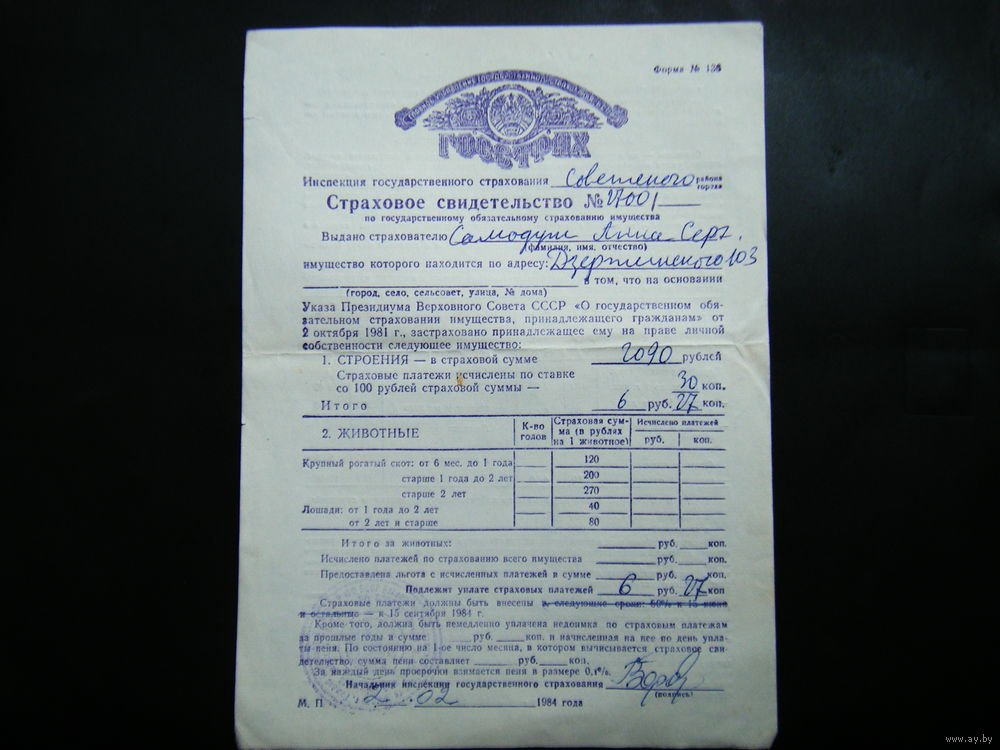 Форма № 136
ГОССТРАХ
Инспекция государственного страхования Советского района
города
Страховое свидетельство № 27001
по государственному обязательному страхованию имущества
Выдано страхователю Самодум Анна Серг.
(фамилия, имя, отчество)
имущество которого находится по адресу: Дзержинского 103
в том, что на основании
(город, село, сельсовет, улица, № дома)
Указа Президиума Верховного Совета СССР «О государственном обя-
зательном страховании имущества, принадлежащего гражданам» от
2 октября 1981 г., застраховано принадлежащее ему на праве личной
собственности следующее имущество:
1. СТРОЕНИЯ — в страховой сумме 2090 рублей
Страховые платежи исчислены по ставке
со 100 рублей страховой суммы — 30 коп.
Итого 6 руб. 27 коп.
2. ЖИВОТНЫЕ К-во голов Страховая сум-ма (в рублях на 1 животное) Исчислено платежей
руб. коп.
Крупный рогатый скот: от 6 мес. до 1 года 120
старше 1 года до 2 лет 200
старше 2 лет 270
Лошади: от 1 года до 2 лет 40
от 2 лет и старше 80
Итого за животных: руб. коп.
Исчислено платежей по страхованию всего имущества руб. коп.
Предоставлена льгота с исчисленных платежей в сумме руб. коп.
Подлежит уплате страховых платежей 6 руб. 27 коп
Страховые платежи должны быть внесены в следующие сроки: 50% к 15 июня
и остальные — к 15 сентября 1984 г.
Кроме того, должна быть немедленно уплачена недоимка по страховым платежам
за прошлые годы в сумме руб. коп. и начисленная на нее по день упла-
ты пеня. По состоянию на 1-ое число месяца, в котором выписывается страховое сви-
детельство, сумма пени составляет руб. коп.
За каждый день просрочки взимается пеня в размере 0,1%.
Начальник инспекции государственного страхования
(подпись)
М. П. 2 02 1984 года
www.ay.by